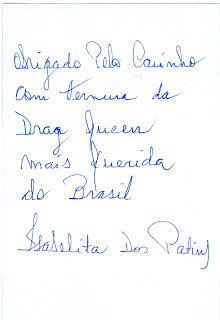 Obrigado Pelo Carinho
com ternura da
Drag Queen
mais Querida
do Brasil
Isabelita Dos Patins